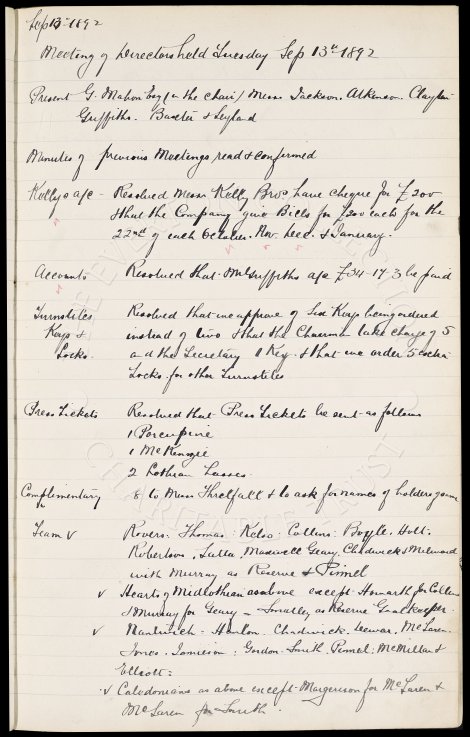 Sep 13th 1892
Meeting of Directors held Tuesday Sep 13th 1892
Present G. Mahon Esq (in the chair) Messrs Jackson. Atkinson. Clayton
Griffiths. Baxter & Leyland
Minutes of previous Meetings read & confirmed
Kellys a/c - Resolved Messrs Kelly Bros have cheque for £200
& that the Company give Bills for £200 each for the
22nd of each October. Nov. Dec. & January.
Accounts Resolved that Mr Griffiths a/c £34-17-3 be paid
Turnstiles Resolved that we approve of Six Keys being ordered
Keys & instead of two & that the Chairman take charge of 5
Locks. and the Secretary 1 Key. & that we order 5 extra
Locks for other Turnstiles
Press Tickets Resolved that Press Tickets be sent as follows
1 Porcupine
1 McKenzie
2 Lothian Lasses
Complimentary 8 to Messrs Threlfall & to ask for names of holders
Team v Rovers. Thomas. Kelso. Collins. Boyle. Holt.
Robertson. Latta. Maxwell Geary. Chadwick & Milward
with Murray as Reserve & Pinnel
v Hearts of Midlothian as above except Howarth for Collins
& Murray for Geary - Smalley as Reserve Goalkeeper.
v Nantwich - Hanlon. Chadwick. Dewar. McLaren.
Jones. Jamieson. Gordon. Smith. Pinnel. McMillan &
Elliott.
v Caledonians as above except Margerison for McLaren &
McLaren for Smith.